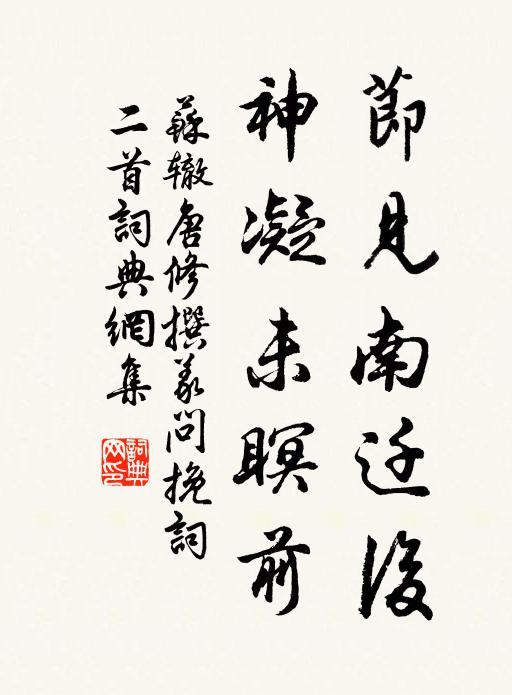 節見南迁後
神凝未瞑前
蘇辙唐修撰義問挽詞
二首詞典網集
詞典
网印